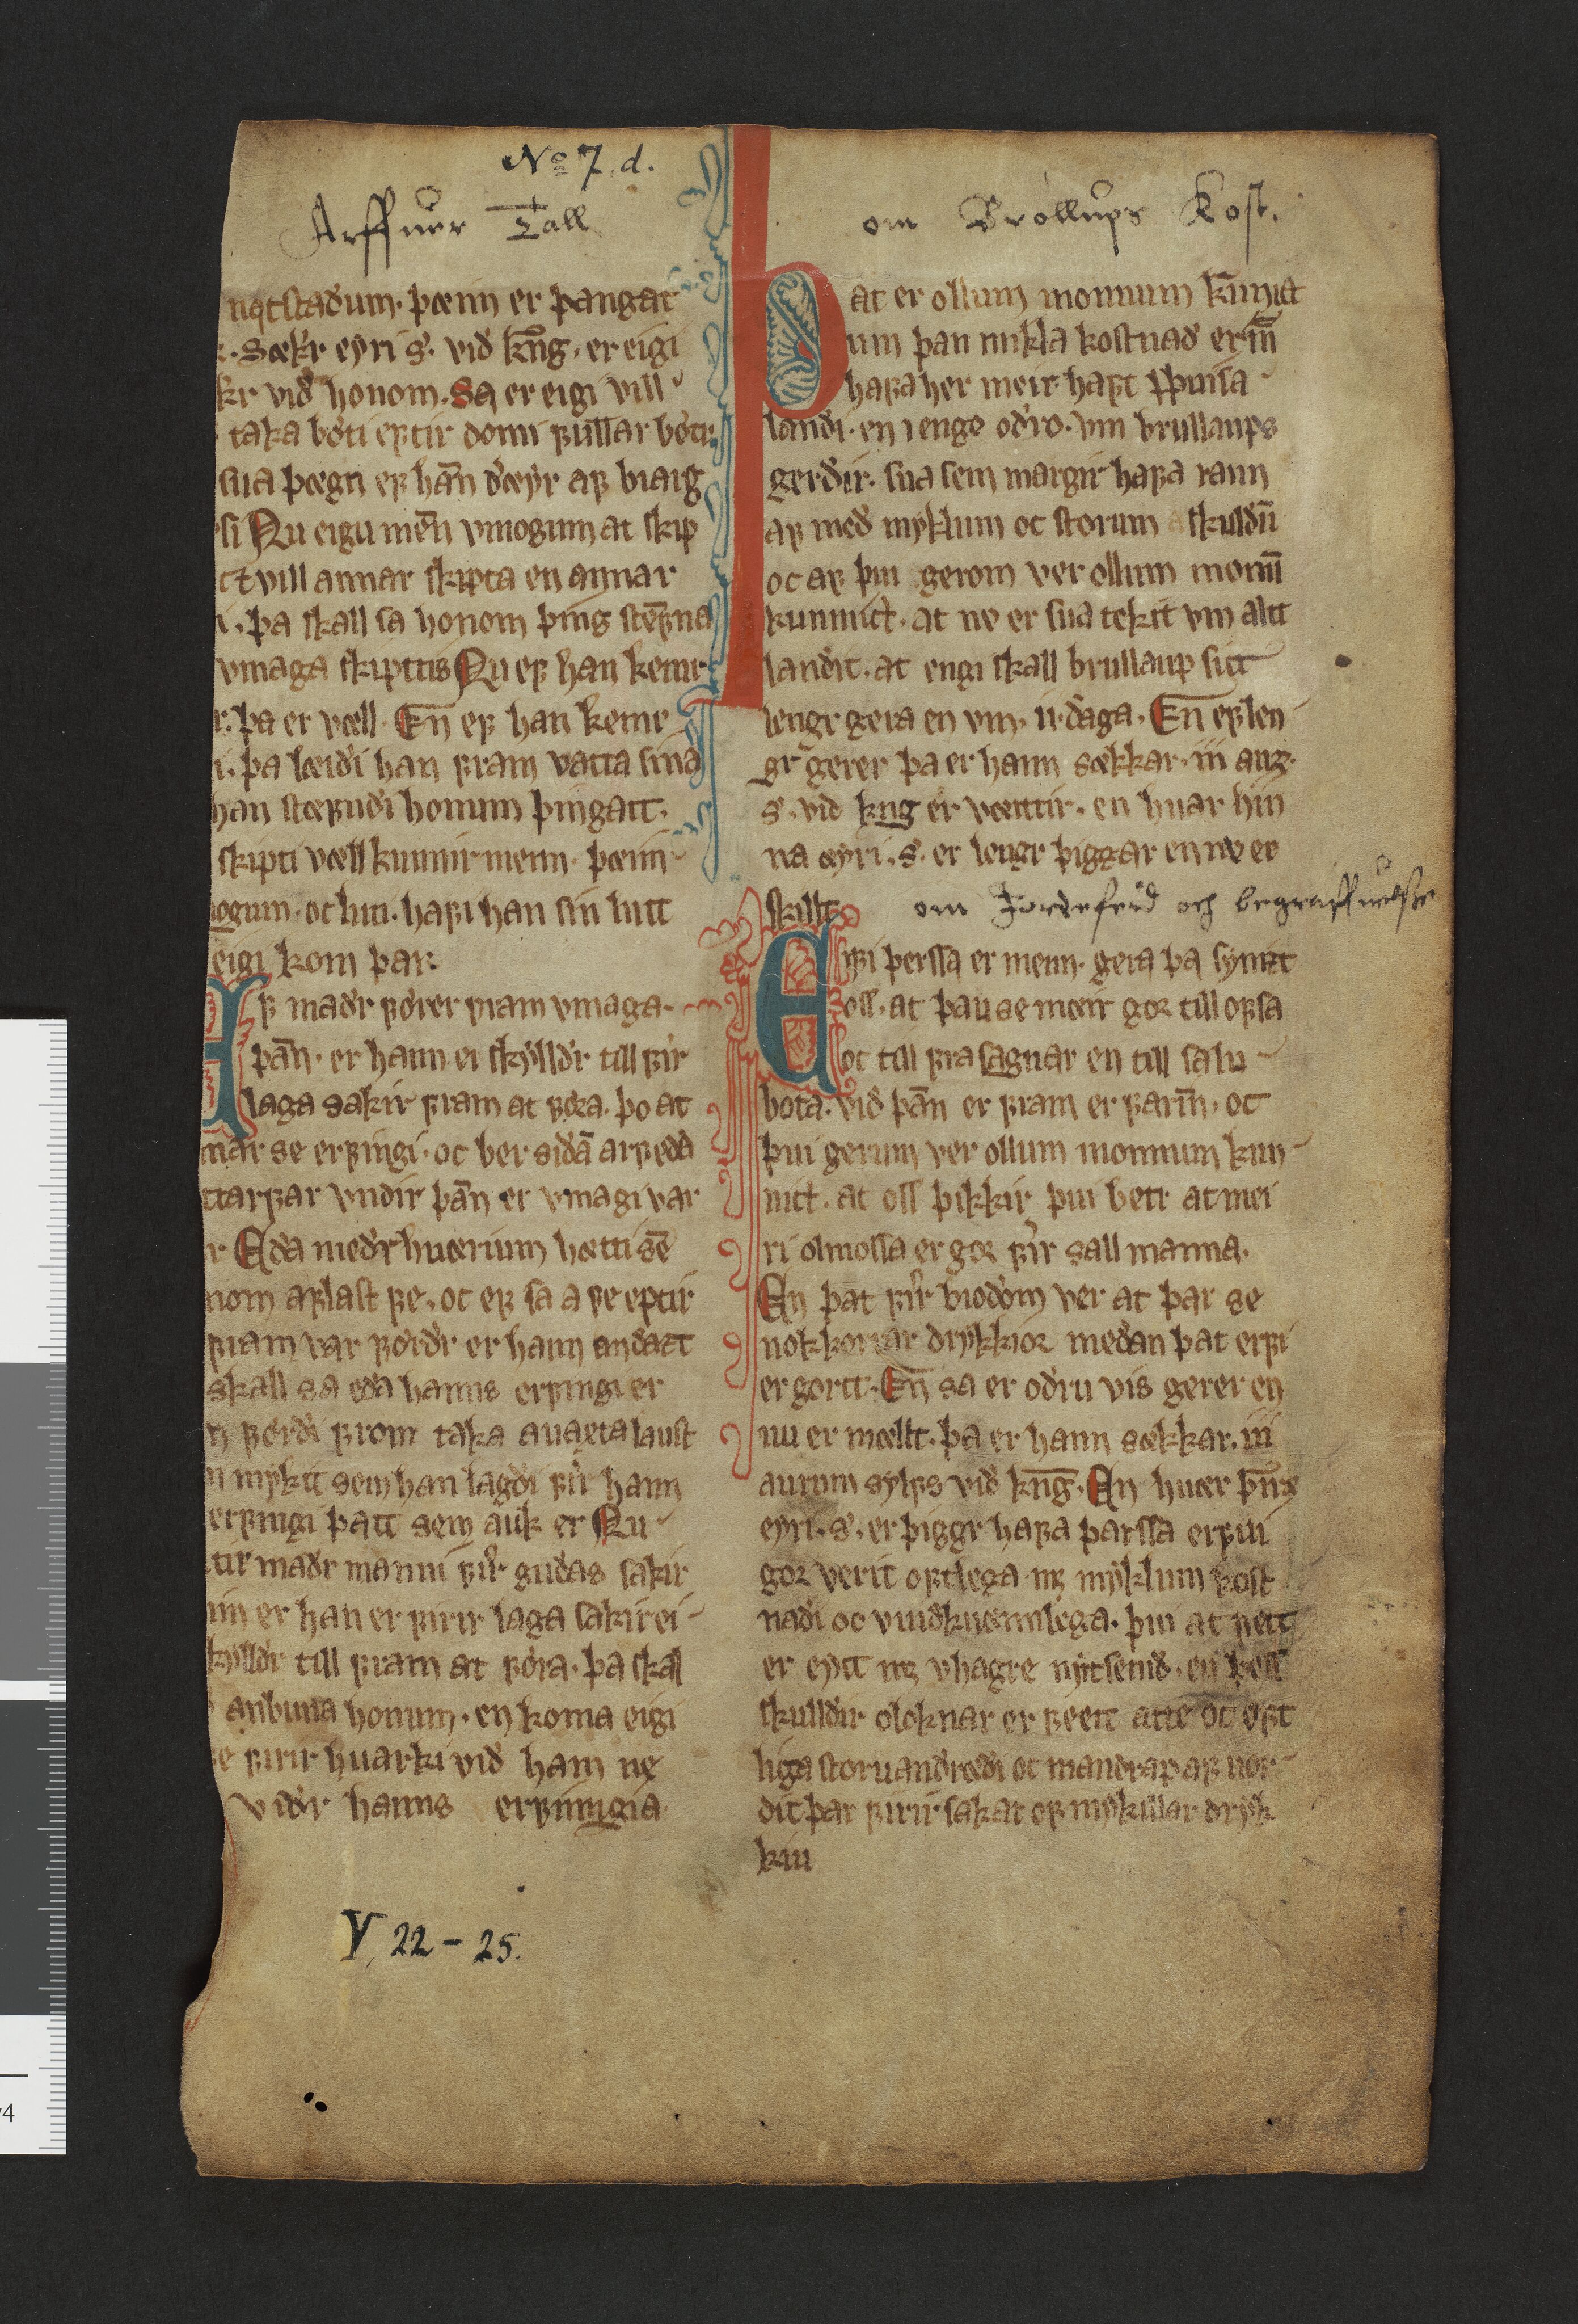 No 7. d.
Arffuer Tall
nqtstadum. þænn er þangat
. Sækr eyri s. vid kong, er eigi
kr við honom. Sa er eigi vill
taka bǿti eptir domi fullar bǿtr
sua þægn ef hān dæyr af biarg
si Nu eigu mēn vmogum at skip
tt vill annar skipta en annar
i. þa skall sa honom þing stēfna
vmaga skipttis Nu ef han kemr
r. þa er væll. En ef han kemr
i. þa læiði han fram vatta sina
han stæfndi honum þingatt.
skipti væll kunnir menn. þænn
mogum. oc luti. hafi han sin lutt
eigi kom þar.
f maðr fører fram vmaga.
þān. er hann ei skylldr till fir
laga sakir fram at føra. þo at
nar se erfingi. oc ber sidā arf eda
ttarfar vndir þān er vmagi var
r Eda medr huærium hætti sē
nom aflast fe. oc ef sa a fe eptir
fram var førdr er hann andatt
skall sa eda hanns erfingi er
n førdi from taka auaxta laust
n mykit sem han lagdi fir hann
erfingi þatt sem auk er Nu
tir maðr manni fir gudas sakir
nn er han er firir laga sakir ei
kylldr till fram at føra. þa skal
anbuna honum. en koma eigi
e firir huarki vid hann ne
vidr hanns erfinngia
V, 22-25.
om Brøllups Kost.
Þat er ollum monnum kunict
um þan mikla kostnad er m̄n
hafa her meir haft i Þuisa
landi. en i enge odro. vm brullaups
gerdir. sua sem margir hafa rann
af med myklum oc storum skuldū
oc af þui gerom ver ollum monū
kunnict. at nv er sua tekit vm altt
landit. at engi skall brullaup sitt
lengr gera en vm. ii. daga. En ef len
gr gerer þa er hann sækkar. iii aur.
s. vid kng er væittir. en huar hin
na æyri. s. er lengr þiggar en nv er
skillt om Jordeferd och begraffuelse
Erfi þerssa er menn. gera þa synizt
oss. at þau se meir gor till ofsa
oc till frasagnar en till salu
bota. vid þān er fram er farin. oc
þui gerum ver ollum monnum kun
nict. at oss þikkir þui betr at mei
ri olmossa er gor fir sall manna.
En þat fir biodom ver at þar se
nokkorrar drykkior medan þat erfi
er gortt. En sa er odru vis gerer en
nu er mællt. þa er hann sækkar. iii
aurum sylfs vid kng. En huær þns
eyri. s. er þiggr hafa þarssa erfui
gor verit oftlega mz myklum kost
nadi oc vuidkuæmlega. þui at feitt
er eytt mz vhagre nytsemd. en þess
skulldir oloknar er feett atte oc oft
liga storuandrædi oc mandrap af uor
dit þar firir sakat of mykillar dryk
kiu